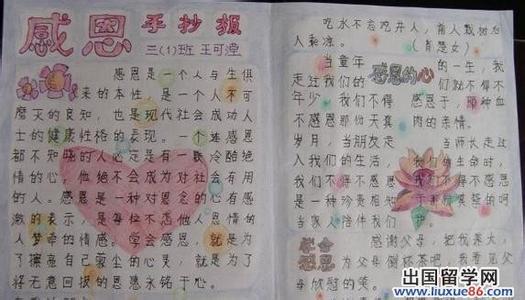 感恩 手抄报
三(1)班 王可
感恩是一个人与生俱
来的本性，是一个人不可
磨灭的良知，也是现代社会成功人
士的健康性格的表现。一个连感恩
都不知晓的人必定是有一颗冷酷绝
情的心，他绝不会成为对社会有用
的人。感恩是一种对恩的心有感
激的表示，是每位不忘他人恩情的
人梦命的情感。学会感恩，就是为
了擦亮自己蒙尘的心灵，就是为了
将无意回报的恩惠永铭于心。
吃水不忘吃井人，前人栽树后
人乘凉。 (肖楚女)
感恩的心
当童年
走过我们的
年少 我们不得
不感恩那份天真
岁月，当朋友走
入我们的生活，
我们不得不感恩
是一种珍贵相
当家人陪伴我们
的一生，我
们就不得不
感恩于，那种血
肉的亲情。
当师长走过
我们的生命时，
我们不得不感恩
于那份展望的呵
学会
感恩
感谢父母，把我养大，
为父母倒杯茶吧，我看到
父母欣慰的笑。
出国留学网
www.liuxue86.com